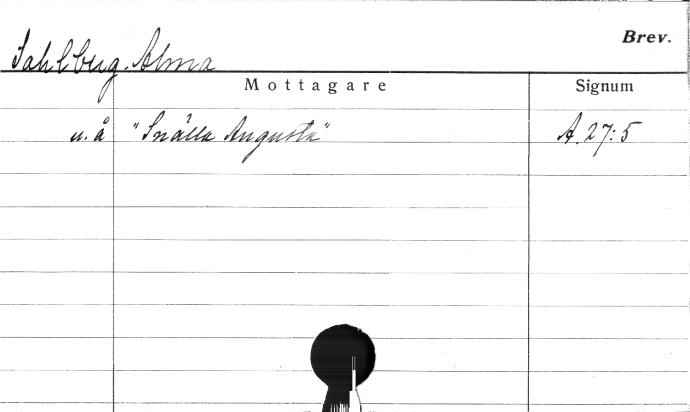 Brev.
Sahlberg. Alma
Mottagare Signum
u. å "Snälla Augusta" A. 27:5